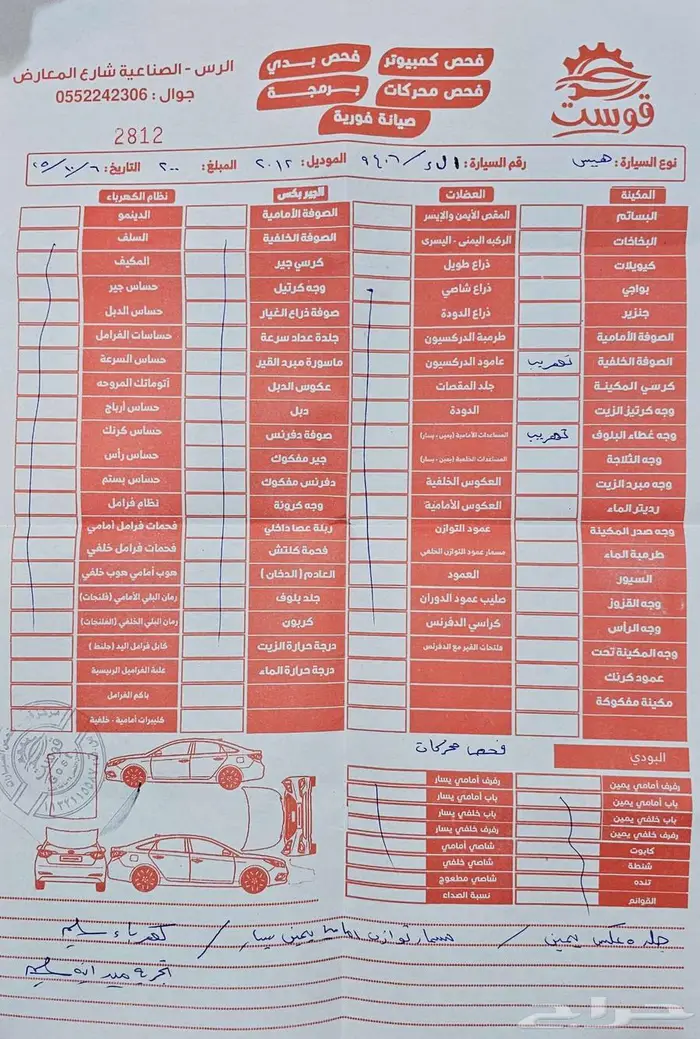 قوست
فحص كمبيوتر
فحص بدي
فحص محركات
برمجة
صيانة فورية
الرس - الصناعية شارع المعارض
جوال : 0552242306
2812
نوع السيارة : هيس رقم السيارة : ٩٤٠٦ / الموديل : ٢٠١٢ المبلغ : ٢٠٠ التاريخ : ٦/١٠/٢٥
المكينة
البساتم
البخاخات
كويلات
بواجي
جنزير
الصوفة الأمامية
الصوفة الخلفية تهريب
كرسي المكينة
وجه كرتيز الزيت
وجه غطاء البلوف تهريب
وجه الثلاجة
وجه مبرد الزيت
رديتر الماء
وجه صدر المكينة
طرمبة الماء
السيور
وجه القزوز
وجه الرأس
وجه المكينة تحت
عمود كرنك
مكينة مفكوكة
العضلات
المقص الأيمن والإيسر
الركبه اليمنى - اليسرى
ذراع طويل
ذراع شاصي
ذراع الدودة
طرمبة الدركسيون
عامود الدركسيون
جلد المقصات
الدودة
المساعدات الأمامية (يمين - يسار)
المساعدات الخلفية (يمين - يسار)
العكوس الخلفية
العكوس الأمامية
عمود التوازن
مسمار عمود التوازن الخلفي
العمود
صليب عمود الدوران
كراسي الدفرنس
فلنجات القير مع الدفرنس
الجير بكس
الصوفة الأمامية
الصوفة الخلفية
كرسي جير
وجه كرتيل
صوفة ذراع الغيار
جلدة عداد سرعة
ماسورة مبرد القير
عكوس الدبل
دبل
صوفة دفرنس
جير مفكوك
دفرنس مفكوك
وجه كرونة
ربلة عصا داخلي
فحمة كلتش
العادم ( الدخان )
جلد بلوف
كربون
درجة حرارة الزيت
درجة حرارة الماء
نظام الكهرباء
الدينمو
السلف
المكيف
حساس جير
حساس الدبل
حساسات الفرامل
حساس السرعة
أتوماتك المروحه
حساس أرباح
حساس كرنك
حساس رأس
حساس بستم
نظام فرامل
فحمات فرامل أمامي
فحمات فرامل خلفي
هوب أمامي هوب خلفي
رمان البلي الأمامي (فلنجات)
رمان البلي الخلفي (الفلنجات)
كابل فرامل اليد ( جلنط )
علبة الفراميل الرئيسية
باكم الفرامل
كليبرات أمامية - خلفية
فحص محركات
البودي
رفرف أمامي يمين
باب أمامي يمين
باب خلفي يمين
رفرف خلفي يمين
كابوت
شنطة
تنده
القوائم
رفرف أمامي يسار
باب أمامي يسار
باب خلفي يسار
رفرف خلفي يسار
شاصي أمامي
شاصي خلفي
شاصي مطعوج
نسبة الصداء
جلده عكس يمين / مسمار توازن امامي يمين يسار / كهرباء سليم
تجربه ميدانيه سليم
حراج